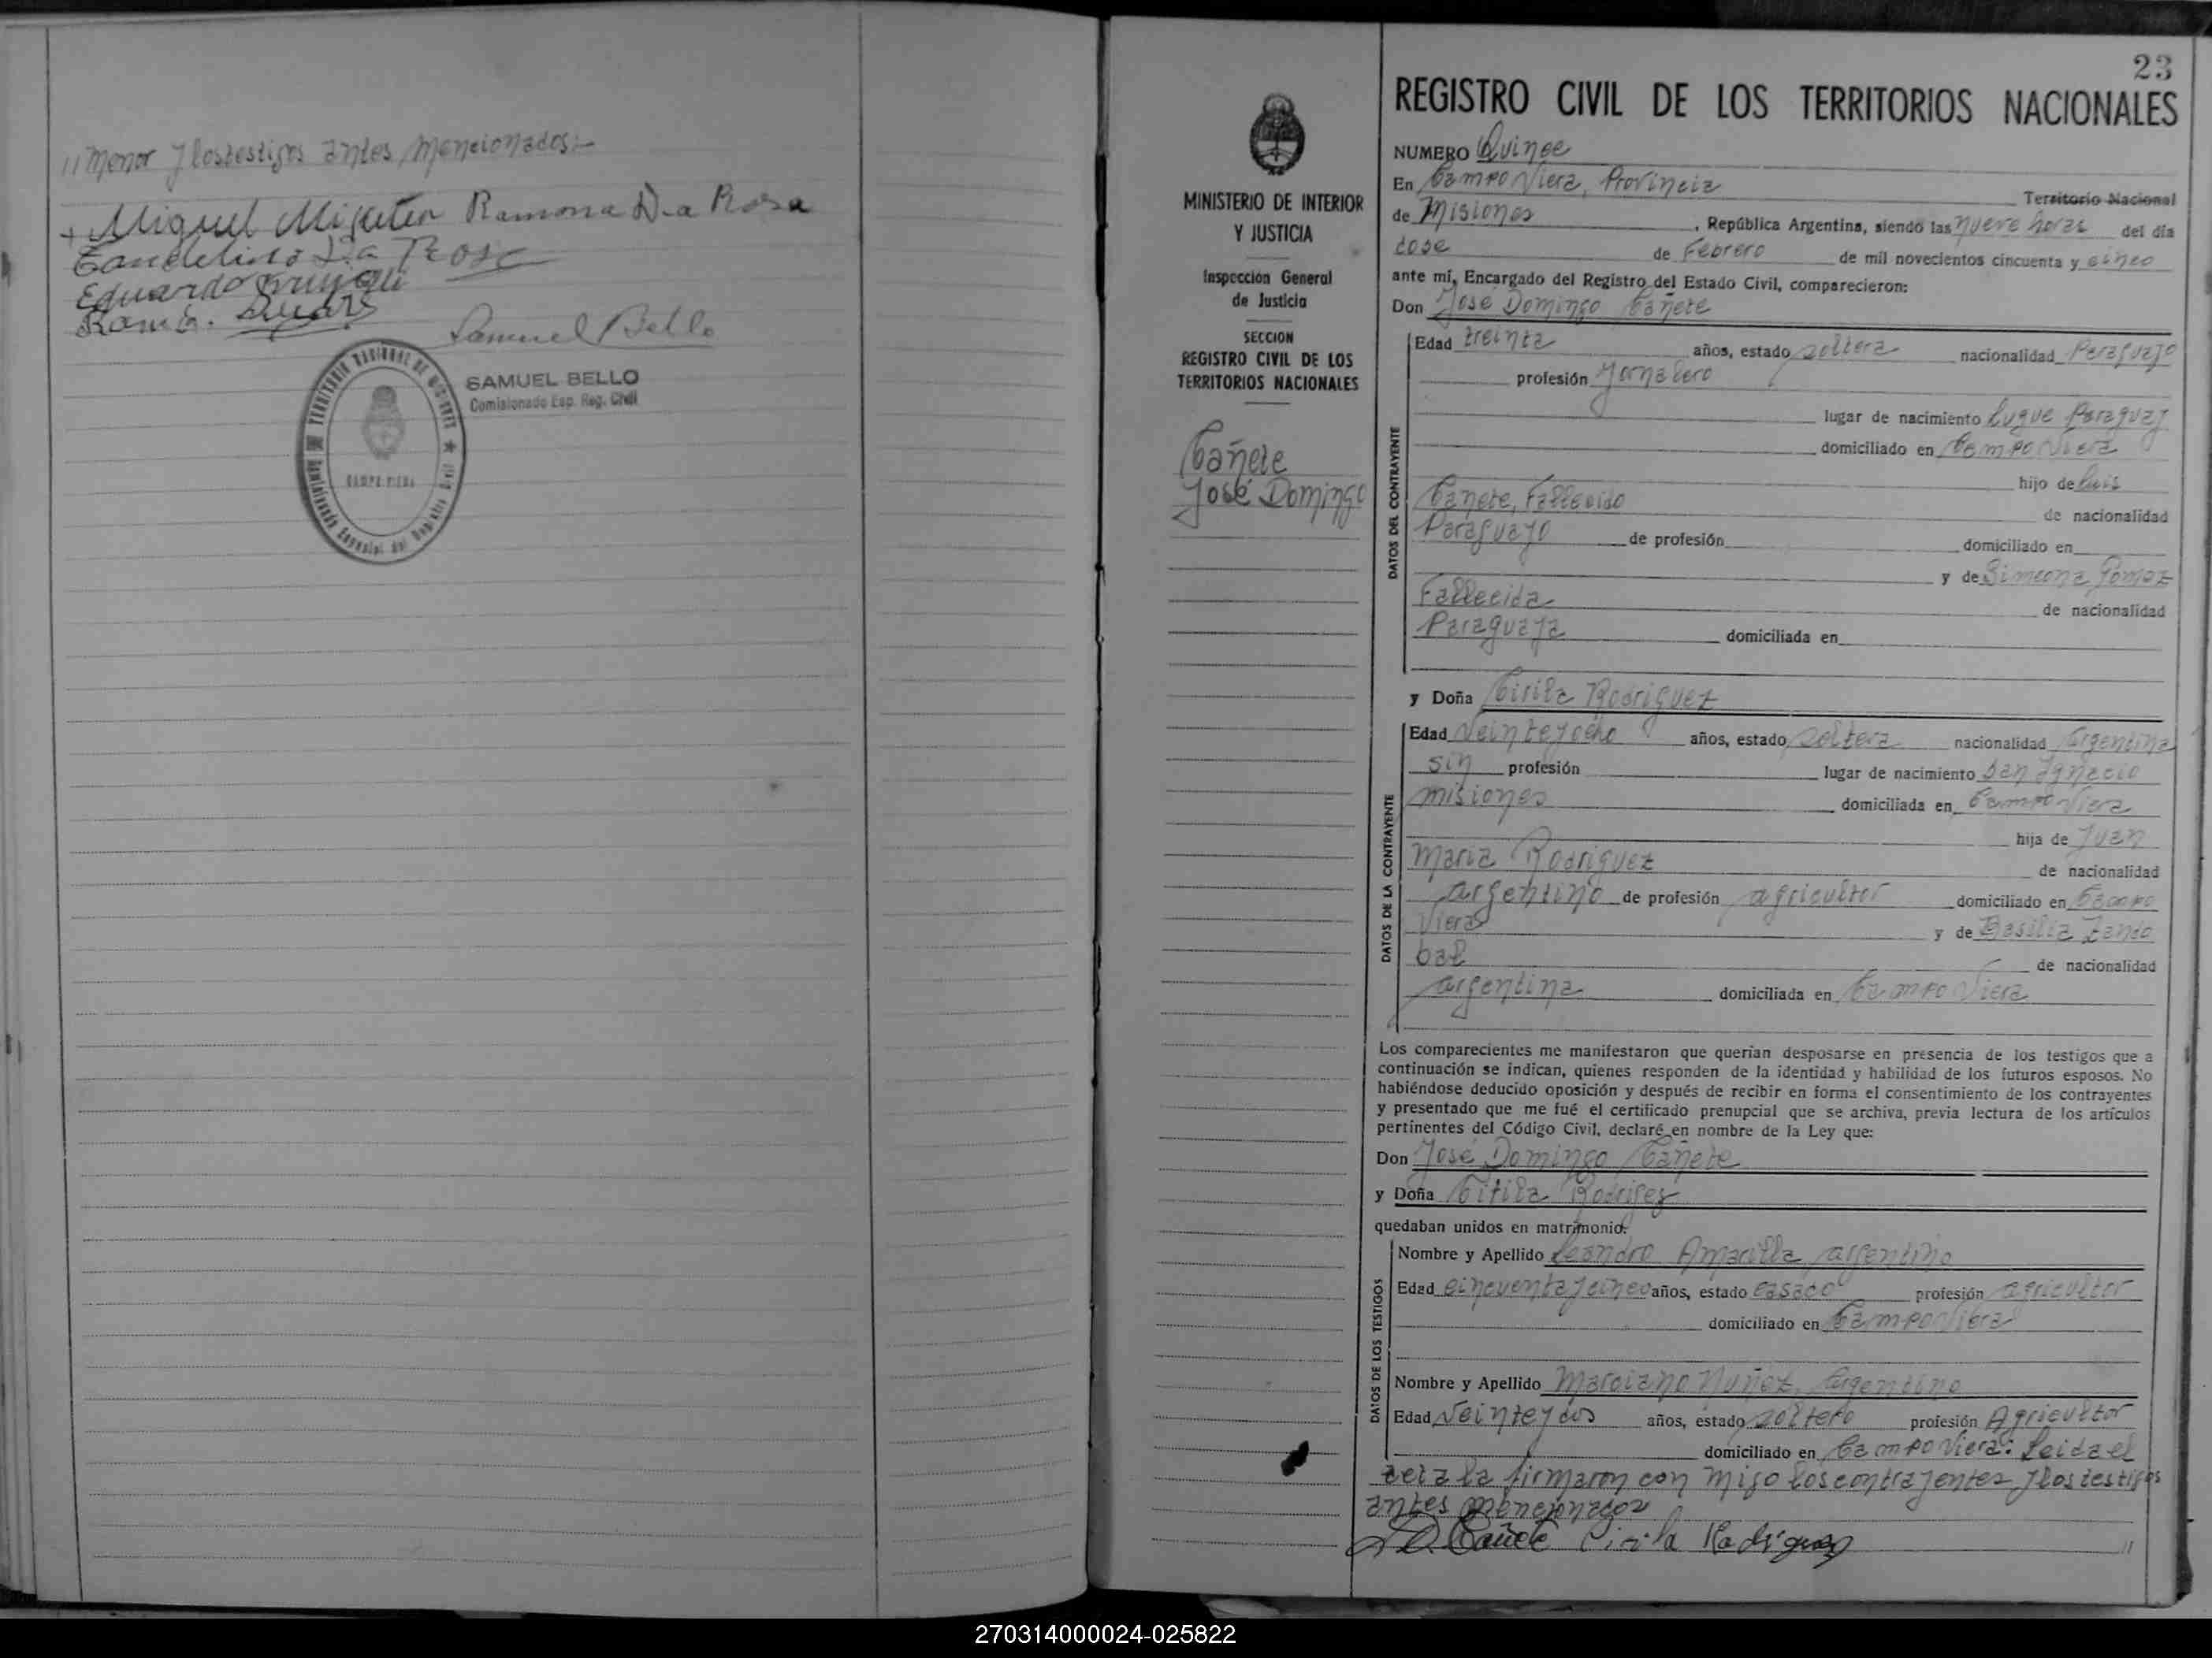 // menor y los testigos antes mencionados:-
+ Miguel Ramona Da Rosa
Da Rosa
Eduardo
Samuel Bello
SAMUEL BELLO
Comisionado Esp. Reg. Civil
TERRITORIO NACIONAL DE MISIONES
CAMPO VIERA
Comisionado Especial del Registro Civil
23
MINISTERIO DE INTERIOR
Y JUSTICIA
Inspección General
de Justicia
SECCION
REGISTRO CIVIL DE LOS
TERRITORIOS NACIONALES
Cañete
José Domingo
REGISTRO CIVIL DE LOS TERRITORIOS NACIONALES
NUMERO Quince
En Campo Viera, Provincia Territorio Nacional
de Misiones, República Argentina, siendo las nueve horas del día
dose de Febrero de mil novecientos cincuenta y cinco
ante mí, Encargado del Registro del Estado Civil, comparecieron:
Don José Domingo Cañete
DATOS DEL CONTRAYENTE
Edad treinta años, estado soltero nacionalidad Paraguayo
profesión Jornalero
lugar de nacimiento Luque Paraguay
domiciliado en Campo Viera
hijo de Luis
Cañete, Fallecido de nacionalidad
Paraguayo de profesión domiciliado en
y de Simeona Gomez
Fallecida de nacionalidad
Paraguaya domiciliada en
y Doña Cirila Rodriguez
DATOS DE LA CONTRAYENTE
Edad Veinteyocho años, estado soltera nacionalidad argentina
sin profesión lugar de nacimiento San Ignacio
misiones domiciliada en Campo Viera
hija de Juan
Maria Rodriguez de nacionalidad
argentino de profesión agricultor domiciliado en Campo
Viera y de Basilia Zando
bal de nacionalidad
argentina domiciliada en Campo Viera
Los comparecientes me manifestaron que querían desposarse en presencia de los testigos que a
continuación se indican, quienes responden de la identidad y habilidad de los futuros esposos. No
habiéndose deducido oposición y después de recibir en forma el consentimiento de los contrayentes
y presentado que me fué el certificado prenupcial que se archiva, previa lectura de los artículos
pertinentes del Código Civil, declaré en nombre de la Ley que:
Don José Domingo Cañete
y Doña Cirila Rodrigez
quedaban unidos en matrimonio.
DATOS DE LOS TESTIGOS
Nombre y Apellido Leandro Amarilla argentino
Edad cincuentaycinco años, estado casado profesión agricultor
domiciliado en Campo Viera
Nombre y Apellido Marciano Nuñez, argentino
Edad Veinteydos años, estado soltero profesión Agricultor
domiciliado en Campo Viera: Leida el
acta la firmaron con migo los contrayentes y los testigos
antes mencionados
Cañete Cirila Rodriguez
//
270314000024-025822